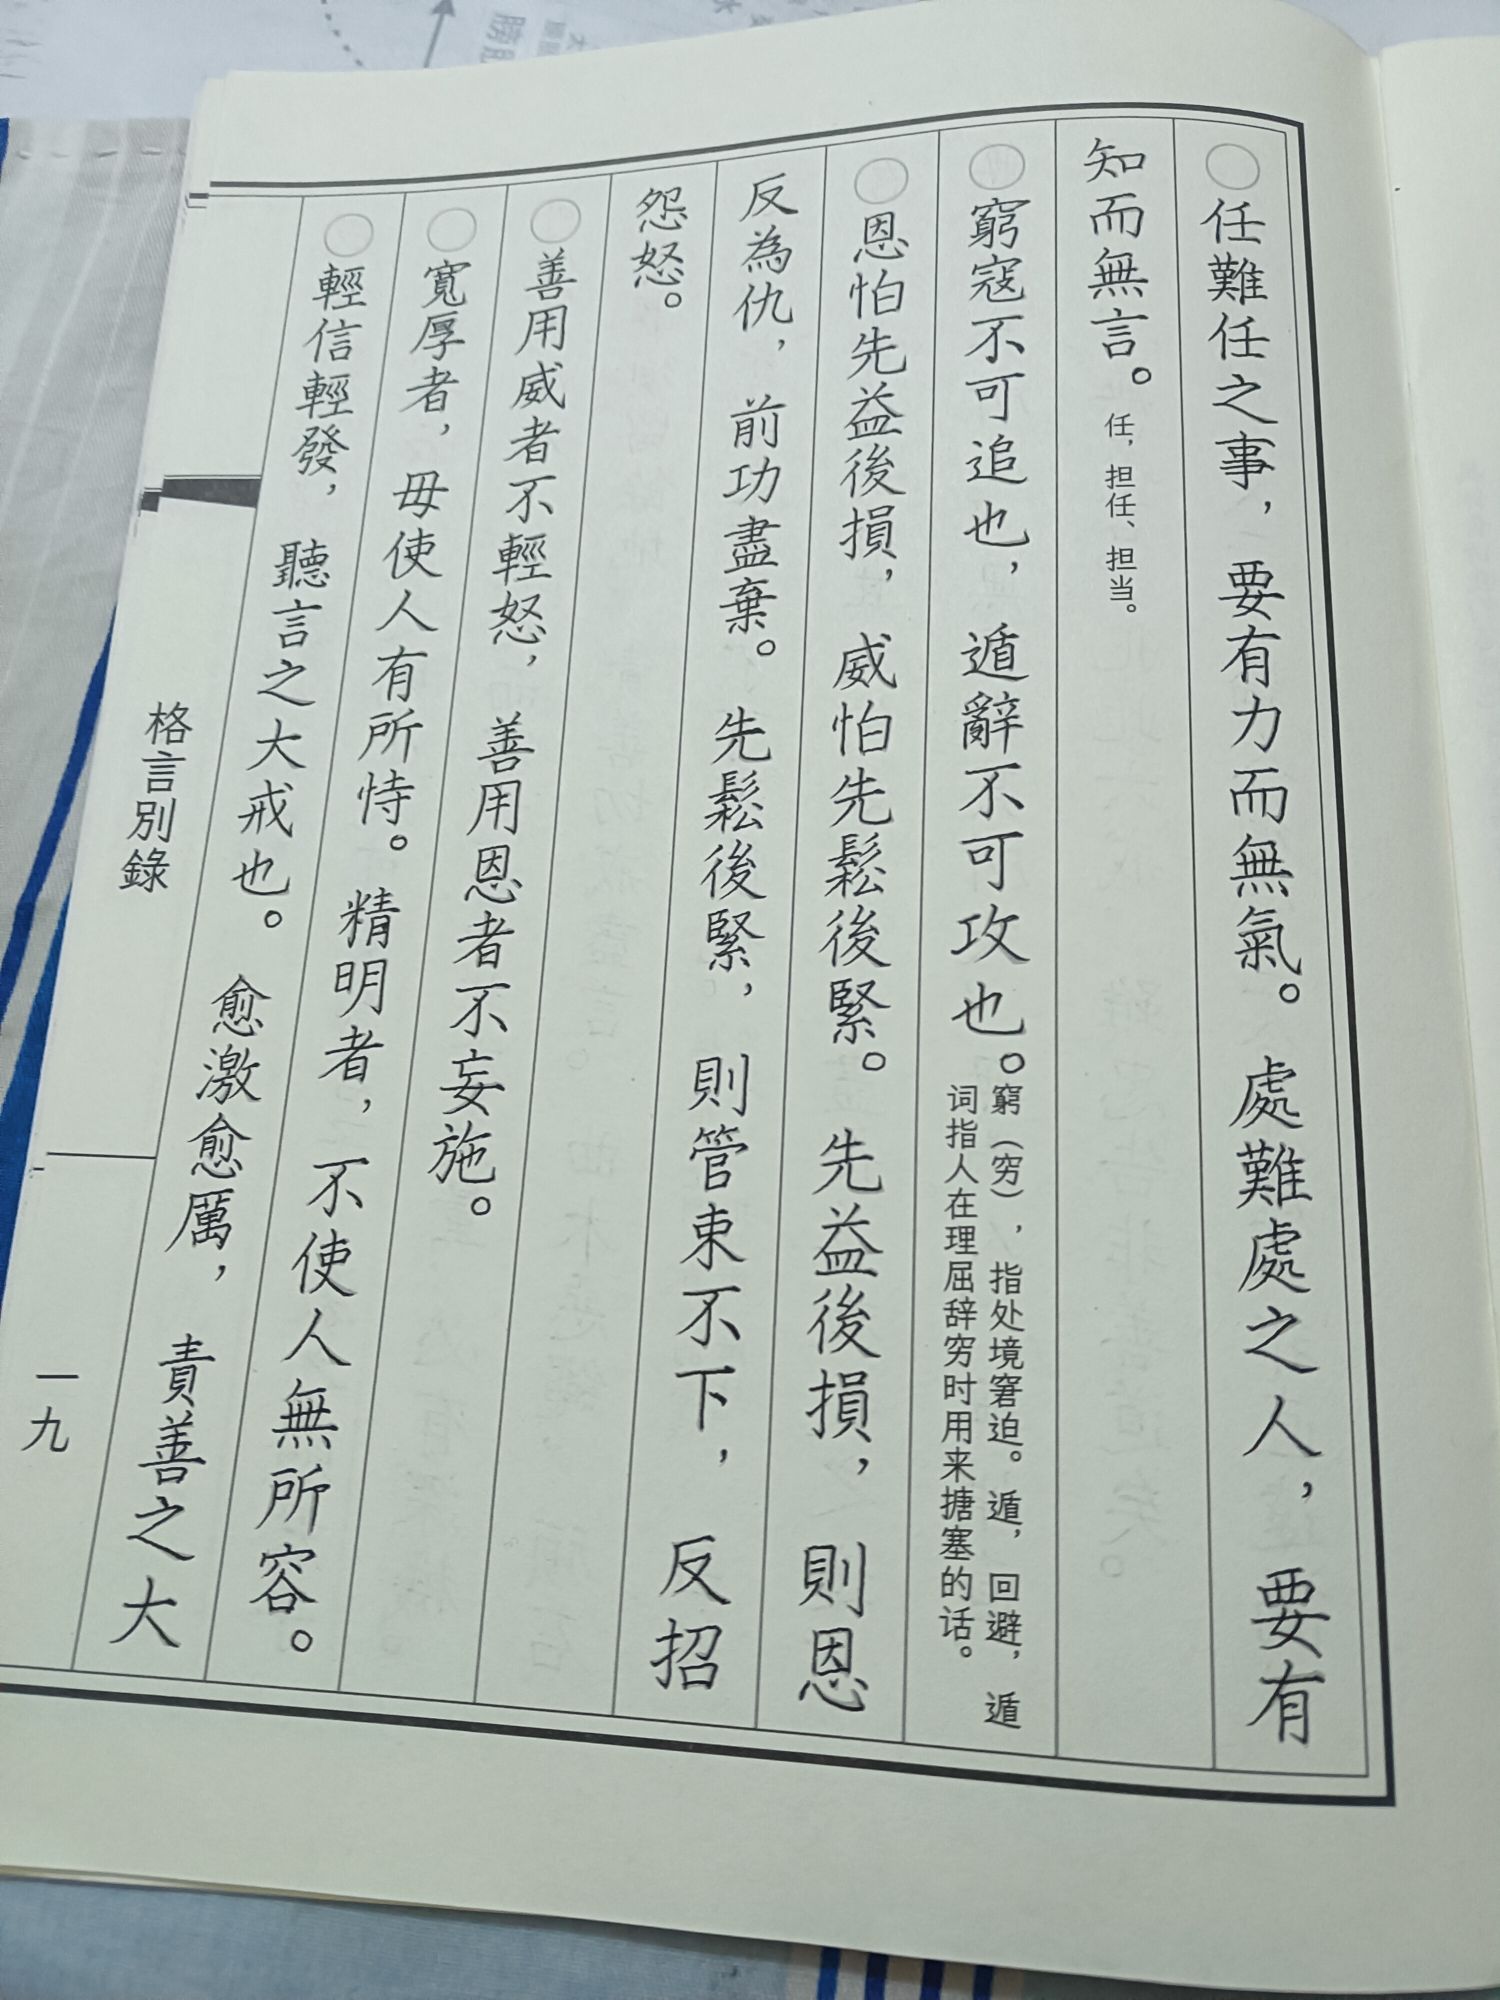 ○任難任之事，要有力而無氣。處難處之人，要有
知而無言。任，担任、担当。
○窮寇不可追也，遁辭不可攻也。窮（穷），指处境窘迫。遁，回避，遁
词指人在理屈辞穷时用来搪塞的话。
○恩怕先益後損，威怕先鬆後緊。先益後損，則恩
反為仇，前功盡棄。先鬆後緊，則管束不下，反招
怨怒。
○善用威者不輕怒，善用恩者不妄施。
○寬厚者，毋使人有所恃。精明者，不使人無所容。
○輕信輕發，聽言之大戒也。愈激愈厲，責善之大
格言別錄
一九